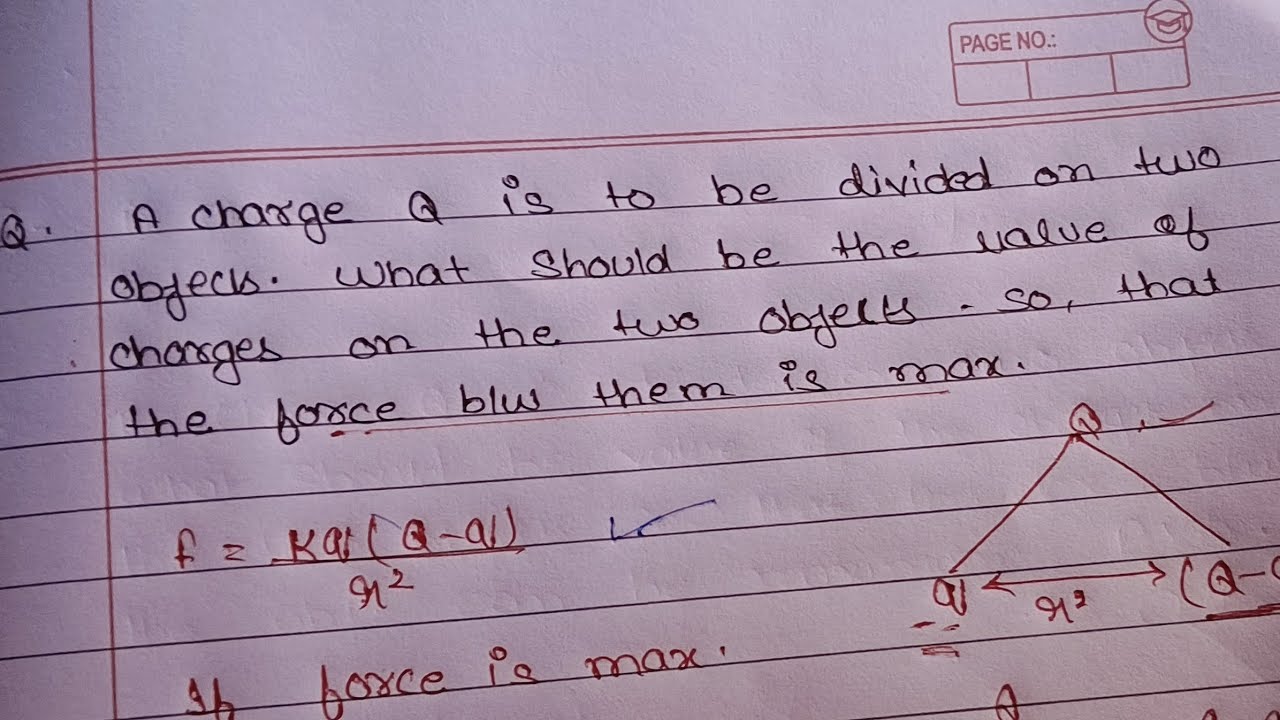 PAGE NO.:
Q. A charge Q is to be divided on two
objects. What should be the value of
charges on the two objects - so, that
the force b/w them is max.
Q
f = Kq(Q-q)
r²
q r² (Q-
If force is max.